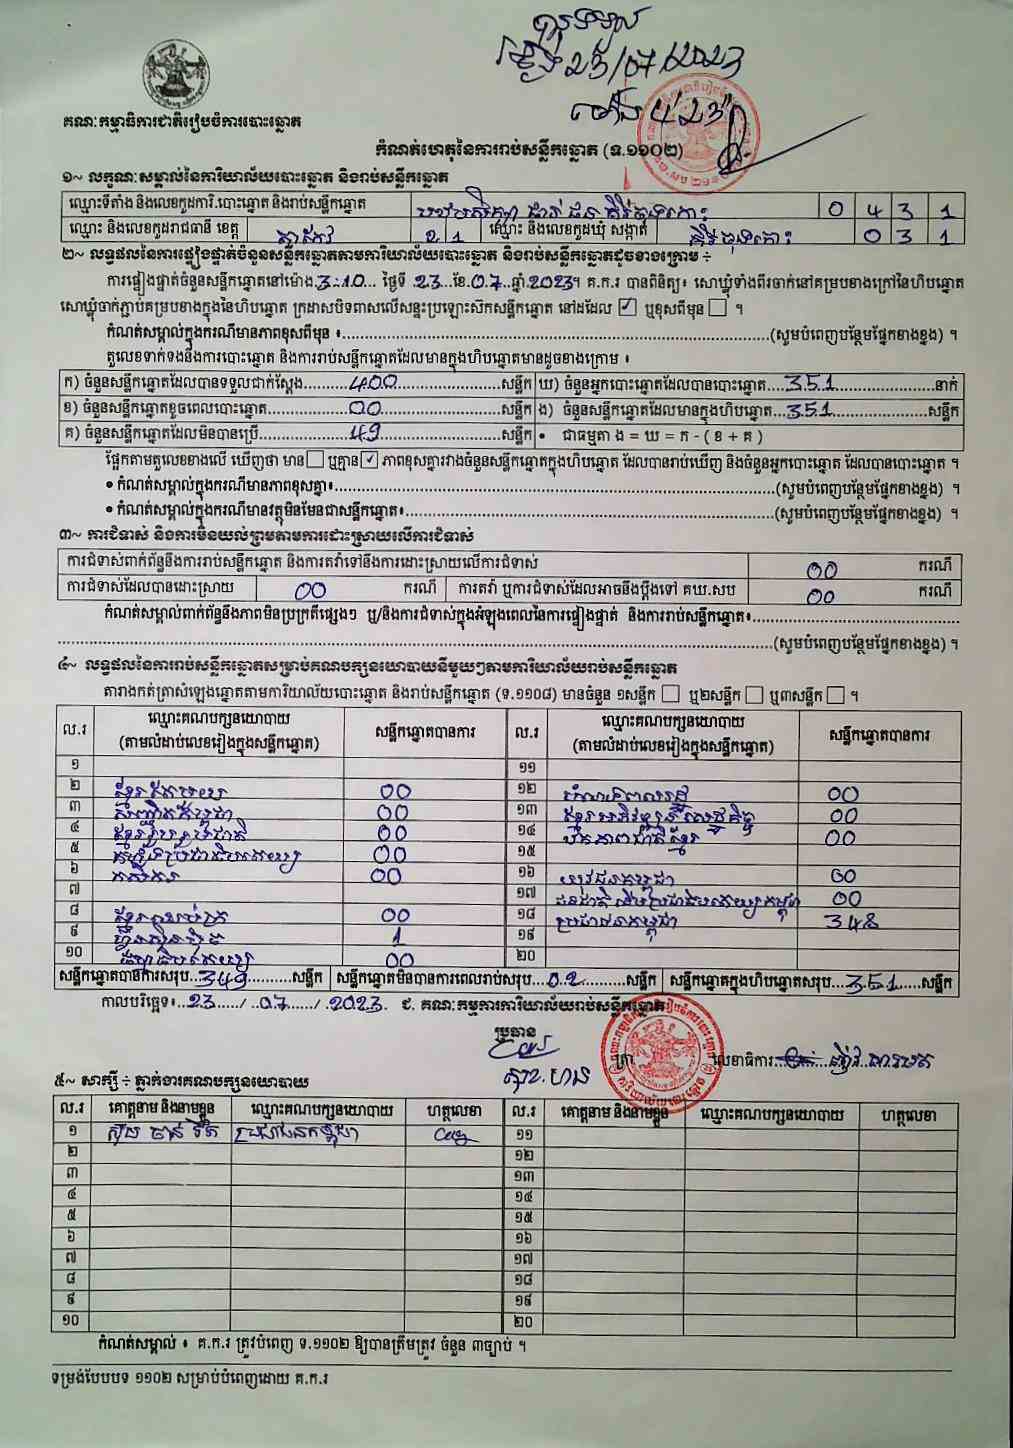 ២៣/07/2023
ម៉ោង ៤"23"
គណៈកម្មាធិការជាតិរៀបចំការបោះឆ្នោត
កំណត់ហេតុនៃការរាប់សន្លឹកឆ្នោត (ទ.១១០២)
១~ លក្ខណៈសម្គាល់នៃការិយាល័យបោះឆ្នោត និងរាប់សន្លឹកឆ្នោត
ឈ្មោះទីតាំង និងលេខកូដការិ.បោះឆ្នោត និងរាប់សន្លឹកឆ្នោត 0 4 3 1
ឈ្មោះ និងលេខកូដរាជធានី ខេត្ត តាកែវ 2 1 ឈ្មោះ និងលេខកូដឃុំ សង្កាត់ គិរីចុងកោះ 0 3 1
២~ លទ្ធផលនៃការផ្ទៀងផ្ទាត់ចំនួនសន្លឹកឆ្នោតតាមការិយាល័យបោះឆ្នោត និងរាប់សន្លឹកឆ្នោតដូចខាងក្រោម ÷
ការផ្ទៀងផ្ទាត់ចំនួនសន្លឹកឆ្នោតនៅម៉ោង 3:10 ថ្ងៃទី 23 ខែ 07 ឆ្នាំ 2023។ គ.ក.រ បានពិនិត្យ៖ សោឃ្លុំទាំងពីរចាក់នៅគម្របខាងក្រៅនៃហិបឆ្នោត
សោឃ្លុំចាក់ភ្ជាប់គម្របខាងក្នុងនៃហិបឆ្នោត ក្រដាសបិទពាសលើសន្ទះប្រឡោះស៊កសន្លឹកឆ្នោត នៅដដែល ☑ ឬខុសពីមុន ☐ ។
កំណត់សម្គាល់ក្នុងករណីមានភាពខុសពីមុន ៖ (សូមបំពេញបន្ថែមផ្នែកខាងខ្នង) ។
តួលេខទាក់ទងនឹងការបោះឆ្នោត និងការរាប់សន្លឹកឆ្នោតដែលមានក្នុងហិបឆ្នោតមានដូចខាងក្រោម ៖
ក) ចំនួនសន្លឹកឆ្នោតដែលបានទទួលជាក់ស្តែង 400 សន្លឹក ឃ) ចំនួនអ្នកបោះឆ្នោតដែលបានបោះឆ្នោត 351 នាក់
ខ) ចំនួនសន្លឹកឆ្នោតខូចពេលបោះឆ្នោត 00 សន្លឹក ង) ចំនួនសន្លឹកឆ្នោតដែលមានក្នុងហិបឆ្នោត 351 សន្លឹក
គ) ចំនួនសន្លឹកឆ្នោតដែលមិនបានប្រើ 49 សន្លឹក • ជាធម្មតា ង = ឃ = ក - ( ខ + គ )
ផ្អែកតាមតួលេខខាងលើ ឃើញថា មាន ☐ ឬគ្មាន ☑ ភាពខុសគ្នារវាងចំនួនសន្លឹកឆ្នោតក្នុងហិបឆ្នោត ដែលបានរាប់ឃើញ និងចំនួនអ្នកបោះឆ្នោត ដែលបានបោះឆ្នោត ។
• កំណត់សម្គាល់ក្នុងករណីមានភាពខុសគ្នា៖ (សូមបំពេញបន្ថែមផ្នែកខាងខ្នង) ។
• កំណត់សម្គាល់ក្នុងករណីមានវត្ថុមិនមែនជាសន្លឹកឆ្នោត៖ (សូមបំពេញបន្ថែមផ្នែកខាងខ្នង) ។
៣~ ការជំទាស់ និងការមិនយល់ព្រមតាមការដោះស្រាយលើការជំទាស់
ការជំទាស់ពាក់ព័ន្ធនឹងការរាប់សន្លឹកឆ្នោត និងការតវ៉ាទៅនឹងការដោះស្រាយលើការជំទាស់ 00 ករណី
ការជំទាស់ដែលបានដោះស្រាយ 00 ករណី ការតវ៉ា ឬការជំទាស់ដែលអាចនឹងប្តឹងទៅ គឃ.សប 00 ករណី
កំណត់សម្គាល់ពាក់ព័ន្ធនឹងភាពមិនប្រក្រតីផ្សេងៗ ឬ/និងការជំទាស់ក្នុងអំឡុងពេលនៃការផ្ទៀងផ្ទាត់ និងការរាប់សន្លឹកឆ្នោត៖
(សូមបំពេញបន្ថែមផ្នែកខាងខ្នង) ។
៤~ លទ្ធផលនៃការរាប់សន្លឹកឆ្នោតសម្រាប់គណបក្សនយោបាយនីមួយៗតាមការិយាល័យរាប់សន្លឹកឆ្នោត
តារាងកត់ត្រាសំឡេងឆ្នោតតាមការិយាល័យបោះឆ្នោត និងរាប់សន្លឹកឆ្នោត (ទ.១១០៨) មានចំនួន ១សន្លឹក ☐ ឬ២សន្លឹក ☐ ឬ៣សន្លឹក ☐ ។
ល.រ ឈ្មោះគណបក្សនយោបាយ (តាមលំដាប់លេខរៀងក្នុងសន្លឹកឆ្នោត) សន្លឹកឆ្នោតបានការ ល.រ ឈ្មោះគណបក្សនយោបាយ (តាមលំដាប់លេខរៀងក្នុងសន្លឹកឆ្នោត) សន្លឹកឆ្នោតបានការ
១ ១១
២ 00 ១២ 00
៣ 00 ១៣ ខ្មែរអភិវឌ្ឍន៍សេដ្ឋកិច្ច 00
៤ ខ្មែររួបរួមជាតិ 00 ១៤ ឯកភាពជាតិខ្មែរ 00
៥ 00 ១៥
៦ កសិករ 00 ១៦ យុវជនកម្ពុជា 00
៧ ១៧ ជនជាតិដើមប្រជាធិបតេយ្យកម្ពុជា 00
៨ 00 ១៨ ប្រជាជនកម្ពុជា 348
៩ ហ្វ៊ុនស៊ិនប៉ិច 1 ១៩
១០ ធម្មាធិបតេយ្យ 00 ២០
សន្លឹកឆ្នោតបានការសរុប 349 សន្លឹក សន្លឹកឆ្នោតមិនបានការពេលរាប់សរុប 02 សន្លឹក សន្លឹកឆ្នោតក្នុងហិបឆ្នោតសរុប 351 សន្លឹក
កាលបរិច្ឆេទ៖ 23 / 07 / 2023 ជ. គណៈកម្មការការិយាល័យរាប់សន្លឹកឆ្នោត
ប្រធាន
ត្រា លេខាធិការ
សុខ.ហាន
៥~ សាក្សី ÷ ភ្នាក់ងារគណបក្សនយោបាយ
ល.រ គោត្តនាម និងនាមខ្លួន ឈ្មោះគណបក្សនយោបាយ ហត្ថលេខា ល.រ គោត្តនាម និងនាមខ្លួន ឈ្មោះគណបក្សនយោបាយ ហត្ថលេខា
១ ប្រជាជនកម្ពុជា ១១
២ ១២
៣ ១៣
៤ ១៤
៥ ១៥
៦ ១៦
៧ ១៧
៨ ១៨
៩ ១៩
១០ ២០
កំណត់សម្គាល់ ៖ គ.ក.រ ត្រូវបំពេញ ទ.១១០២ ឱ្យបានត្រឹមត្រូវ ចំនួន ៣ច្បាប់ ។
ទម្រង់បែបបទ ១១០២ សម្រាប់បំពេញដោយ គ.ក.រ